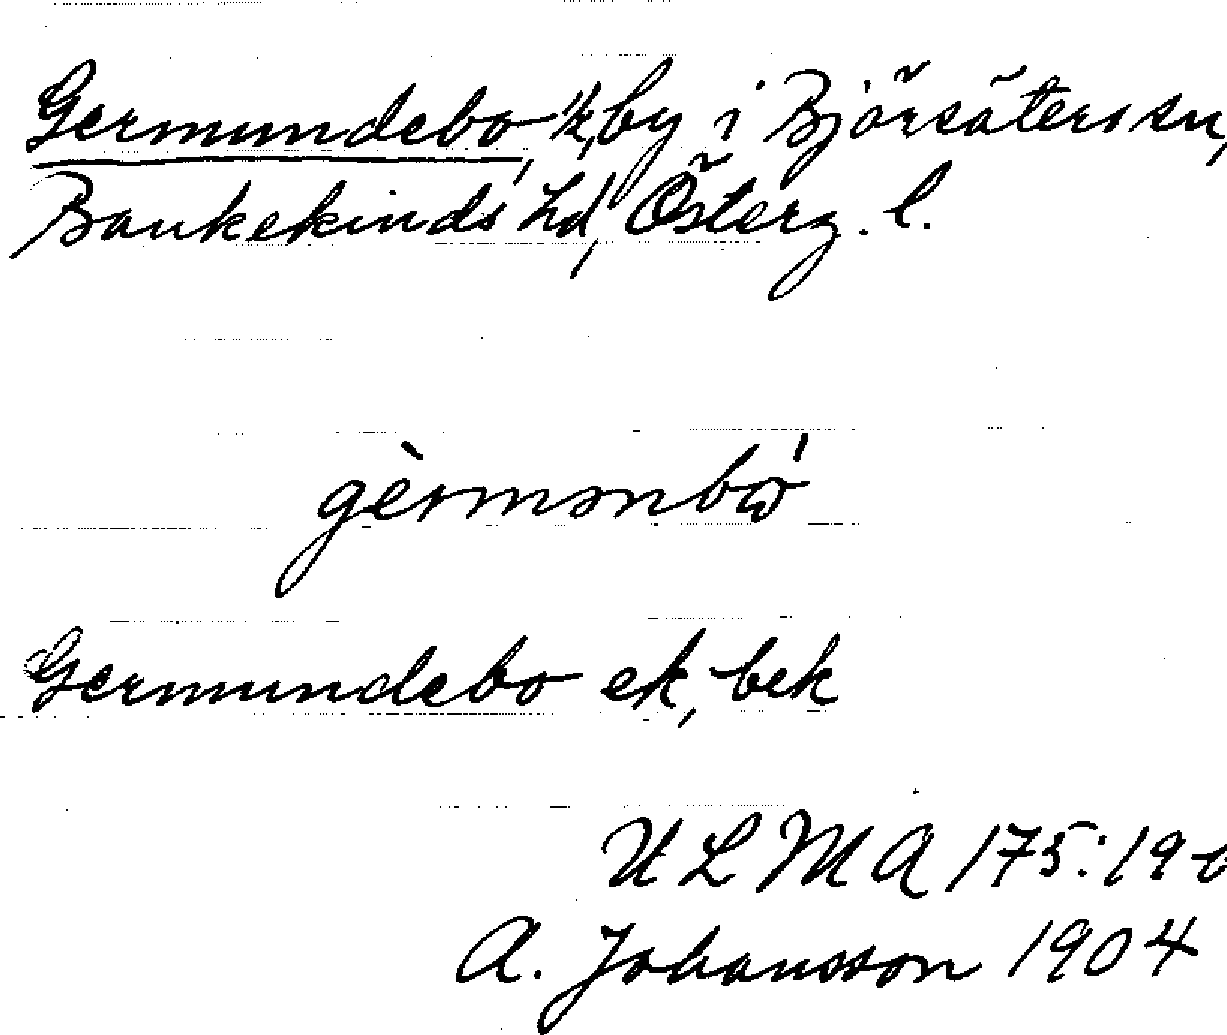 Germundebo, by i Björsäters sn,
Bankekinds hd, Österg. l.
gèrmɔnbὼ
Germundebo ek, bek
ULMA 175:19
A. Johansson 1904